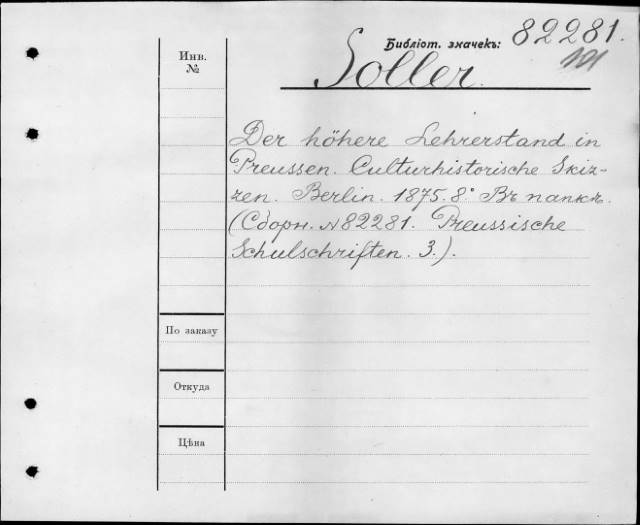 Библіот. значекъ: 82281.
101
Инв.
№
Soller.
Der höhere Lehrerstand in
Preussen. Culturhistorische Skiz-
zen. Berlin. 1875. 8.° Въ папкѣ.
(Сборн. № 82281. Preussische
Schulschriften. 3.).
По заказу
Откуда
Цѣна